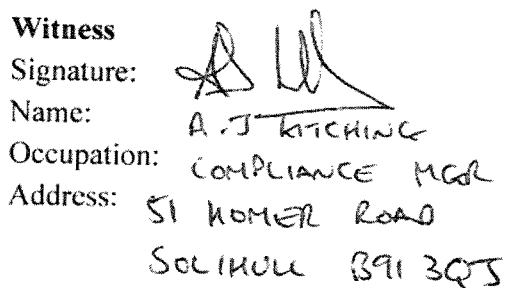 Witness
Signature:
Name: A.J KITCHING
Occupation: COMPLIANCE MGR
Address: 51 HOMER ROAD
SOLIHULL B91 3QJ